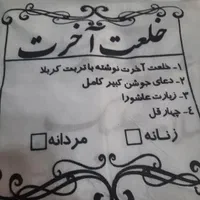 خلعت آخرت
۱- خلعت آخرت نوشته با تربت کربلا
۲- دعای جوشن کبیر کامل
۳- زیارت عاشورا
٤- چهار قل
زنانه □ مردانه □